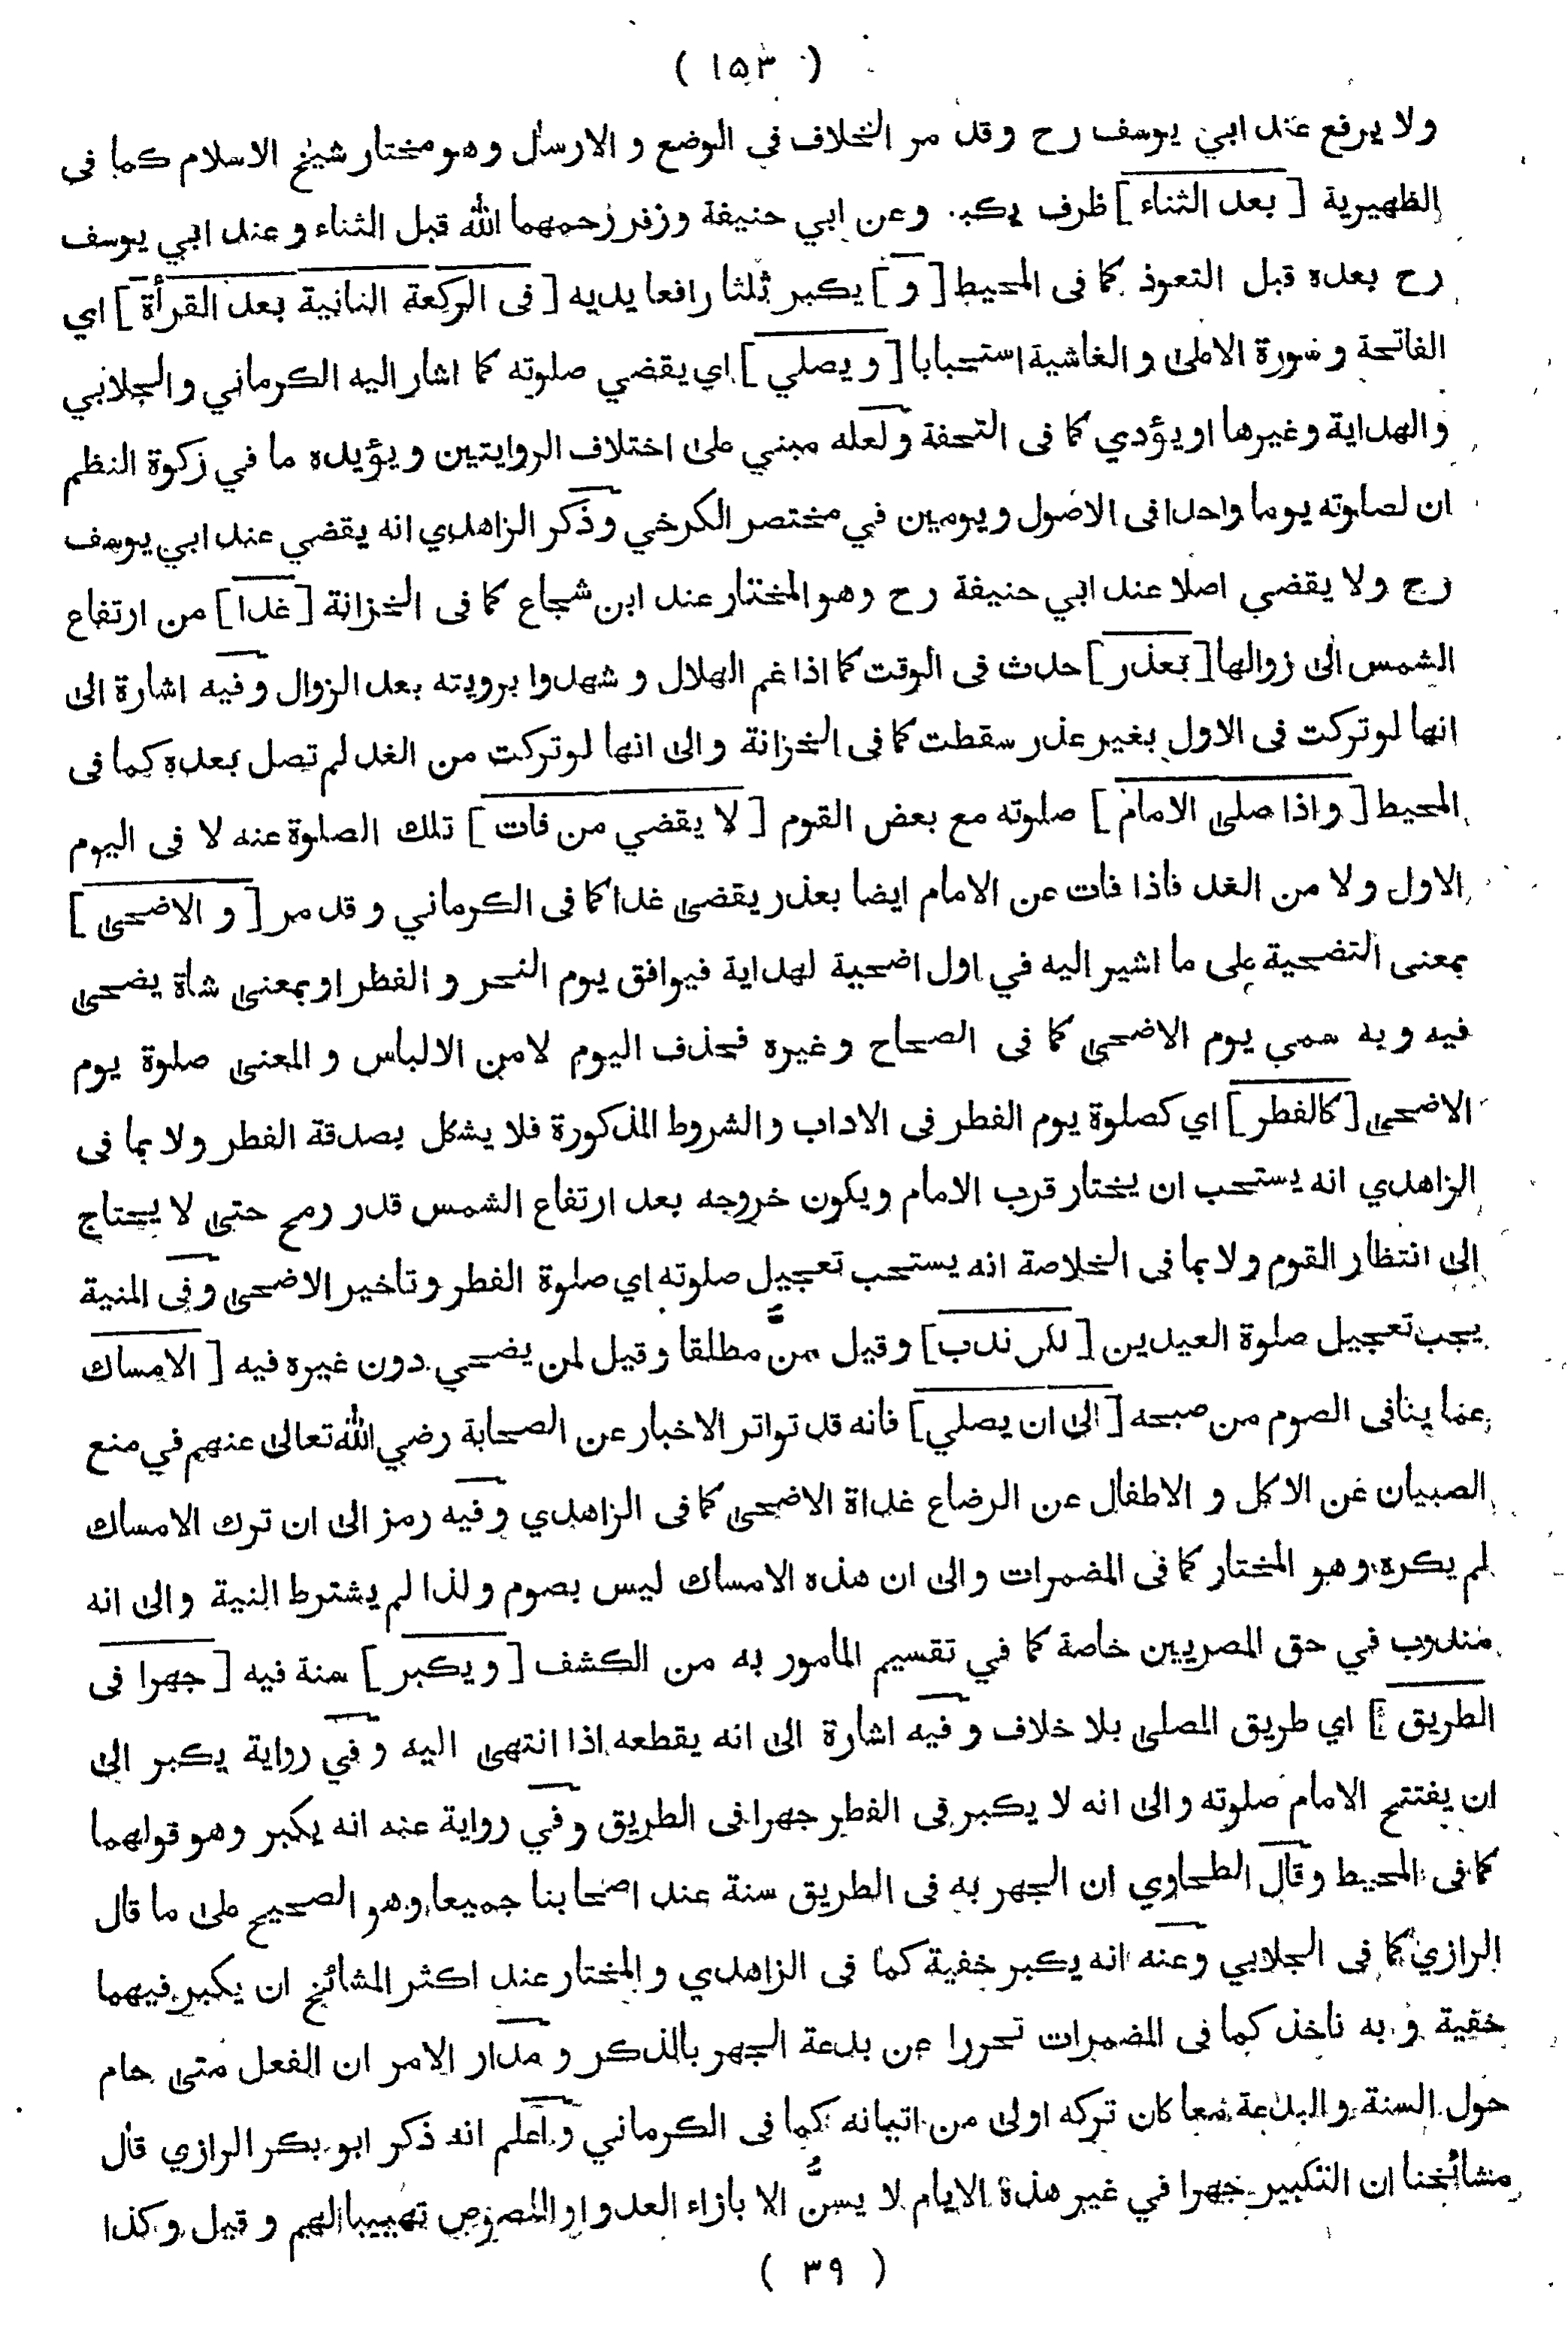 ( ١٥٣ )
ولا يرفع عند ابي يوسف رح وقد مر الخلاف في الوضع و الارسال وهو مختار شيخ الاسلام كما فى
الظهيرية [ بعد الثناء ] ظرف يكبر. وعن ابي حنيفة وزفر رحمهما الله قبل الثناء وعند ابي يوسف
رح بعده قبل التعوذ كما فى المحيط [ و ] يكبر ثلثا رافعا يديه [ فى الركعة الثانية بعد القرأة ] اي
الفاتحة و سورة الاعلى و الغاشية استحبابا [ و يصلي ] اي يقضي صلوته كما اشار اليه الكرماني والجلابي
و الهداية وغيرها او يؤدي كما فى التحفة ولعله مبني على اختلاف الروايتين ويؤيده ما في زكوة النظم
ان لصلوته يوما واحدا فى الاصول ويومين في مختصر الكرخي وذكر الزاهدي انه يقضي عند ابي يوسف
رح ولا يقضي اصلا عند ابي حنيفة رح وهو المختار عند ابن شجاع كما فى الخزانة [ غدا ] من ارتفاع
الشمس الى زوالها [ بعذر ] حدث فى الوقت كما اذا غم الهلال و شهدوا برويته بعد الزوال وفيه اشارة الى
انها لو تركت فى الاول بغير عذر سقطت كما فى الخزانة والى انها لو تركت من الغد لم تصل بعده كما فى
المحيط [ و اذا صلى الامام ] صلوته مع بعض القوم [ لا يقضي من فات ] تلك الصلوة عنه لا فى اليوم
الاول ولا من الغد فاذا فات عن الامام ايضا بعذر يقضى غدا كما فى الكرماني وقد مر [ و الاضحى ]
بمعنى التضحية على ما اشير اليه في اول اضحية لهداية فيوافق يوم النحر و الفطر او بمعنى شاة يضحى
فيه وبه سمي يوم الاضحى كما فى الصحاح وغيره فحذف اليوم لامن الالباس و المعنى صلوة يوم
الاضحى [ كالفطر ] اي كصلوة يوم الفطر فى الاداب والشروط المذكورة فلا يشكل بصدقة الفطر ولا بما فى
الزاهدي انه يستحب ان يختار قرب الامام ويكون خروجه بعد ارتفاع الشمس قدر رمح حتى لا يحتاج
الى انتظار القوم ولا بما فى الخلاصة انه يستحب تعجيل صلوته اي صلوة الفطر وتاخير الاضحى وفى المنية
يجب تعجيل صلوة العيدين [ لكن ندب ] وقيل سن مطلقا وقيل لمن يضحي دون غيره فيه [ الامساك
عما ينافى الصوم من صبحه [ الى ان يصلي ] فانه قد تواتر الاخبار عن الصحابة رضي الله تعالى عنهم في منع
الصبيان عن الاكل و الاطفال عن الرضاع غداة الاضحى كما فى الزاهدي وفيه رمز الى ان ترك الامساك
لم يكره وهو المختار كما فى المضمرات والى ان هذه الامساك ليس بصوم ولذا لم يشترط النية والى انه
مندوب في حق المصريين خاصة كما في تقسيم المامور به من الكشف [ و يكبر ] سنة فيه [ جهرا فى
الطريق ] اي طريق المصلى بلا خلاف وفيه اشارة الى انه يقطعه اذا انتهى اليه وفي رواية يكبر الى
ان يفتتح الامام صلوته والى انه لا يكبر فى الفطر جهرا فى الطريق وفي رواية عنه انه يكبر وهو قولهما
كما فى المحيط وقال الطحاوي ان الجهر به فى الطريق سنة عند اصحابنا جميعا وهو الصحيح على ما قال
الرازي كما فى الجلابي وعنه انه يكبر خفية كما فى الزاهدي والمختار عند اكثر المشائخ ان يكبر فيهما
خفية و به ناخذ كما فى المضمرات تحررا عن بدعة الجهر بالذكر و مدار الامر ان الفعل متى حام
حول السنة و البدعة معا كان تركه اولى من اتيانه كما فى الكرماني واعلم انه ذكر ابو بكر الرازي قال
مشائخنا ان التكبير جهرا في غير هذه الايام لا يسن الا بازاء العدو او اللصوص تهييبا لهم وقيل وكذا
( ٣٩ )